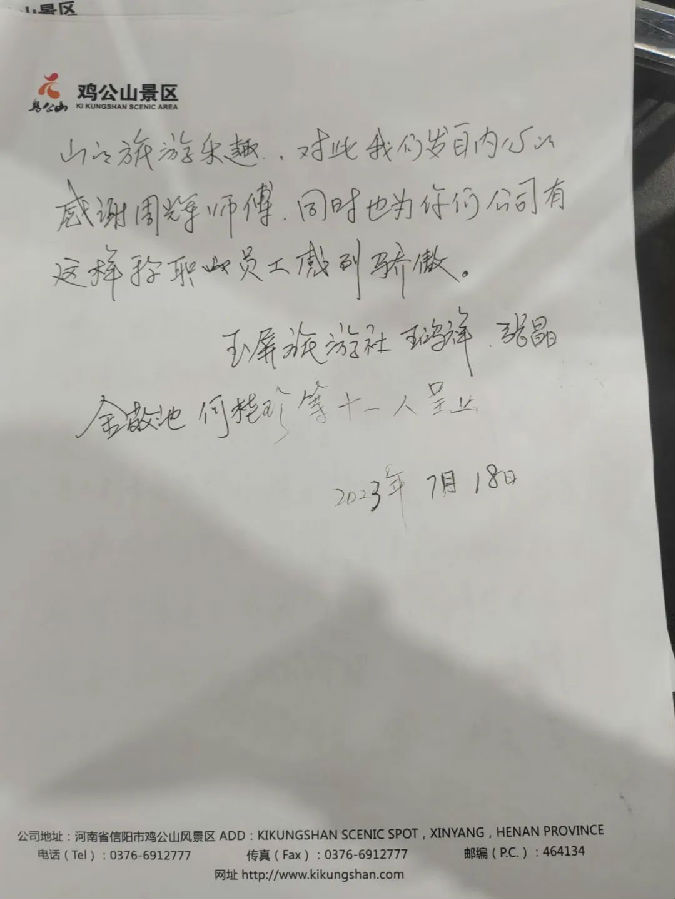 山景区
鸡公山
鸡公山景区
KI KUNGSHAN SCENIC AREA
山之旅游乐趣，对此我们发自内心以
感谢周辉师傅，同时也为你们公司有
这样称职的员工感到骄傲。
玉屏旅游社 王鸿祥 张晶
金敬池 何桂珍等十一人呈上
2023年7月18日
公司地址：河南省信阳市鸡公山风景区 ADD：KIKUNGSHAN SCENIC SPOT，XINYANG，HENAN PROVINCE
电话（Tel）：0376-6912777 传真（Fax）：0376-6912777 邮编（P.C.）：464134
网址 http://www.kikungshan.com